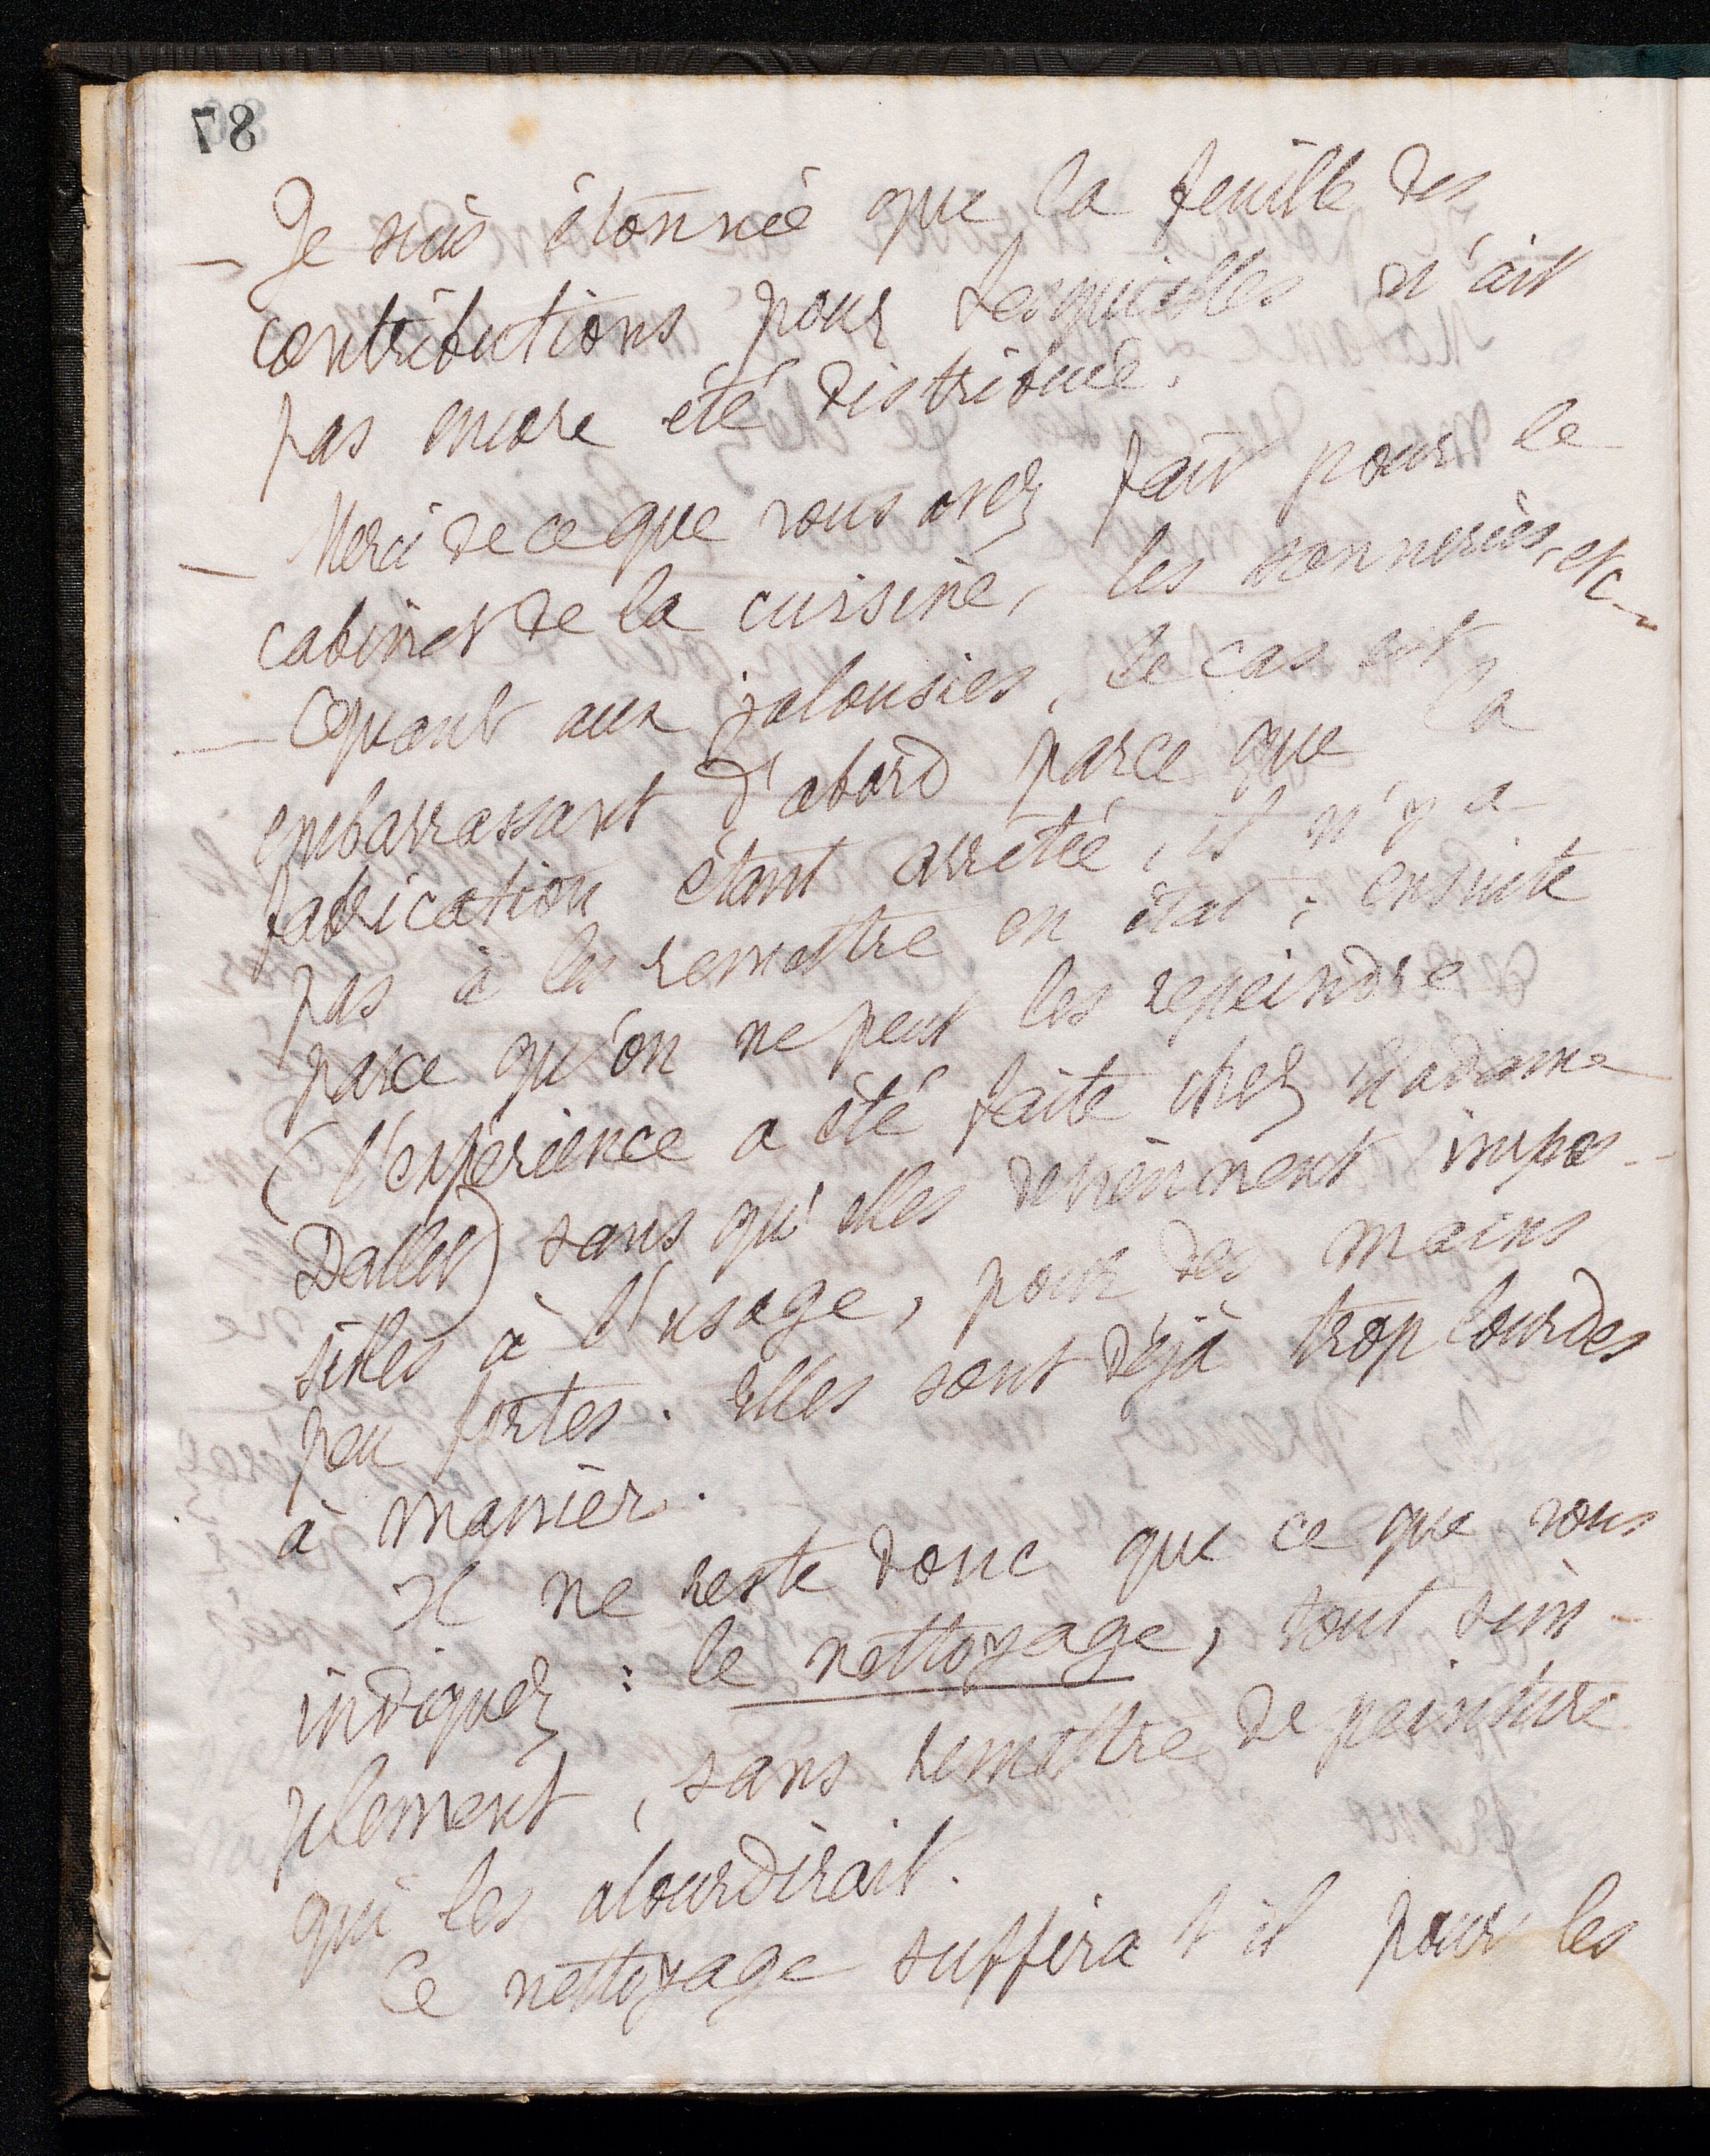 87
— Je suis étonnée que la feuille des
contributions pour Lesquielles n'ait
pas encore été distribuée.
— Merci de ce que vous avez fait pour le
cabinet de la cuisine, les sonneries, etc_
— Quant aux jalousies, le cas est
embarrassant d'abord parce que la
fabrication étant arrêtée, il n'y a
pas à les remettre en état ; ensuite
parce qu'on ne peut les repeindre
(l'expérience a été faite chez Madame
Dallet) sans qu'elles deviennent impos-
sibles à l'usage, pour des mains
peu fortes. Elles sont déjà trop lourdes
à manier.
Il ne reste donc que ce que vous
indiquez : le nettoyage, tout sim-
plement, sans remettre de peinture
qui les alourdirait.
Ce nettoyage suffira t il pour les